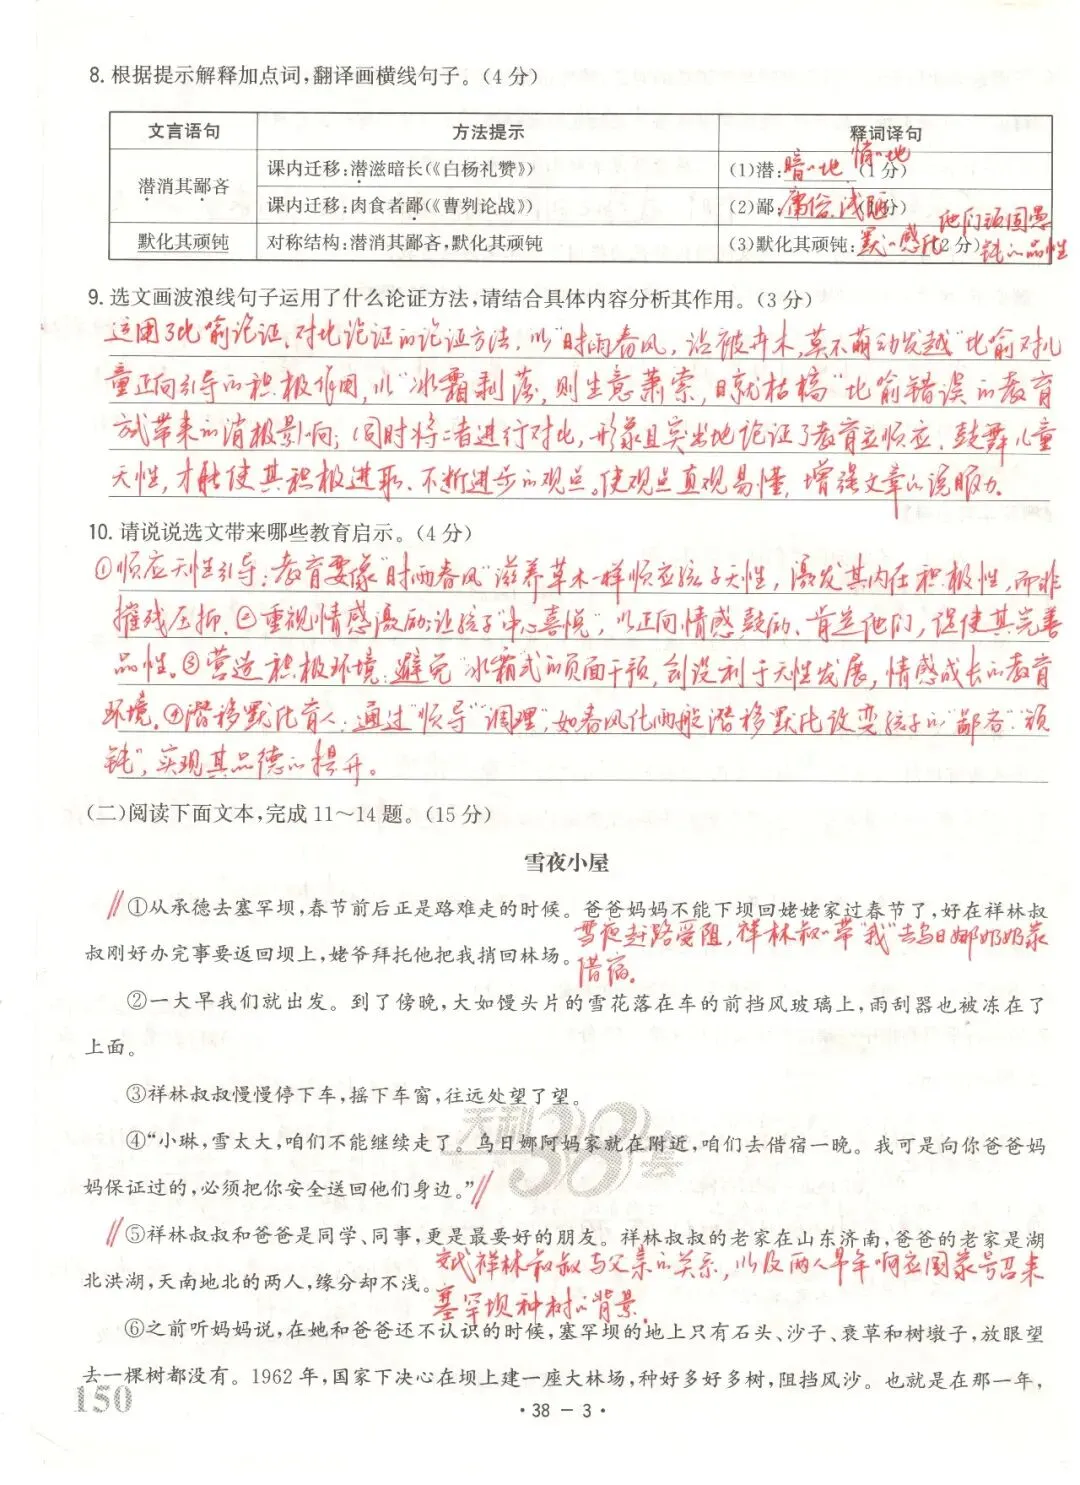 8. 根据提示解释加点词,翻译画横线句子。(4 分)
文言语句 方法提示 释词译句
潜消其鄙吝 课内迁移:潜滋暗长(《白杨礼赞》) (1)潜:暗暗地 悄悄地 (1分)
课内迁移:肉食者鄙(《曹刿论战》) (2)鄙:庸俗、浅陋 (1分)
默化其顽钝 对称结构:潜消其鄙吝,默化其顽钝 (3)默化其顽钝:默默感化 (2 分) 他们顽固愚
钝的品性
9. 选文画波浪线句子运用了什么论证方法,请结合具体内容分析其作用。(3 分)
运用了比喻论证、对比论证的论证方法,以“时雨春风,沾被卉木,莫不萌动发越”比喻对儿
童正向引导的积极作用,以“冰霜剥落,则生意萧索,日就枯槁”比喻错误的教育
方式带来的消极影响;同时将二者进行对比,形象且突出地论证了教育应顺应、鼓舞儿童
天性,才能使其积极进取、不断进步的观点。使观点直观易懂,增强文章的说服力。
10. 请说说选文带来哪些教育启示。(4 分)
①顺应天性引导:教育要像“时雨春风”滋养草木一样顺应孩子天性,激发其内在积极性,而非
摧残压抑。②重视情感激励:让孩子“中心喜悦”,以正向情感鼓励、肯定他们,促使其完善
品性。③营造积极环境:避免“冰霜式”的负面干预,创设利于天性发展,情感成长的教育
环境。④潜移默化育人:通过“顺导”“调理”,如春风化雨般潜移默化改变孩子的“鄙吝”“顽
钝”,实现其品德的提升。
(二)阅读下面文本,完成 11～14 题。(15 分)
雪夜小屋
①从承德去塞罕坝,春节前后正是路难走的时候。爸爸妈妈不能下坝回姥姥家过春节了,好在祥林叔
叔刚好办完事要返回坝上,姥爷拜托他把我捎回林场。
雪夜赶路受阻,祥林叔叔带“我”去乌日娜奶奶家
借宿。
②一大早我们就出发。到了傍晚,大如馒头片的雪花落在车的前挡风玻璃上,雨刮器也被冻在了
上面。
③祥林叔叔慢慢停下车,摇下车窗,往远处望了望。
④“小琳,雪太大,咱们不能继续走了。乌日娜阿妈家就在附近,咱们去借宿一晚。我可是向你爸爸妈
妈保证过的,必须把你安全送回他们身边。”
天利38套
⑤祥林叔叔和爸爸是同学、同事,更是最要好的朋友。祥林叔叔的老家在山东济南,爸爸的老家是湖
北洪湖,天南地北的两人,缘分却不浅。
交代祥林叔叔与父亲的关系,以及两人早年响应国家号召来
塞罕坝种树的背景。
⑥之前听妈妈说,在她和爸爸还不认识的时候,塞罕坝的地上只有石头、沙子、衰草和树墩子,放眼望
去一棵树都没有。1962 年,国家下决心在坝上建一座大林场,种好多好多树,阻挡风沙。也就是在那一年,
150
·38－3·